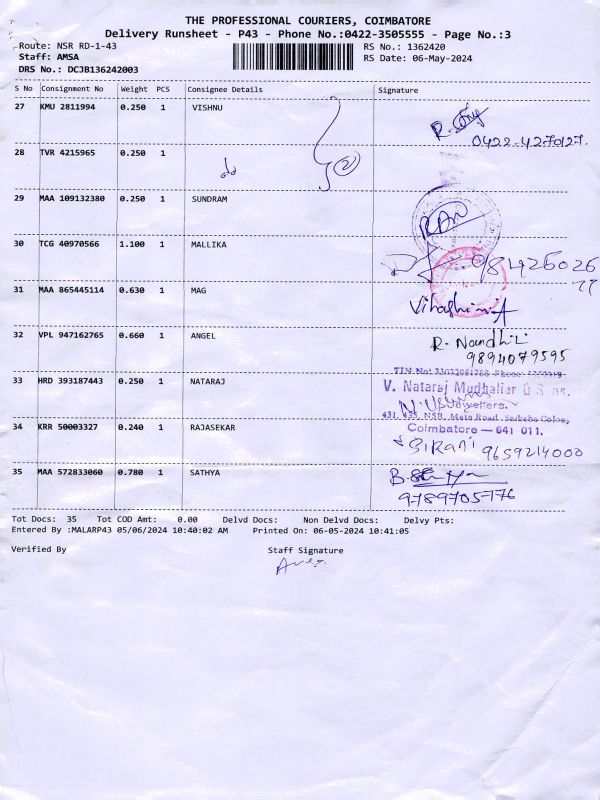 THE PROFESSIONAL COURIERS, COIMBATORE
Delivery Runsheet - P43 - Phone No.:0422-3505555 - Page No.:3
Route: NSR RD-1-43
RS No.: 1362420
Staff: AMSA
RS Date: 06-May-2024
DRS No.: DCJB136242003
S No Consignment No Weight PCS Consignee Details Signature
27 KMU 2811994 0.250 1 VISHNU
0422-4270127.
28 TVR 4215965 0.250 1
29 MAA 109132380 0.250 1 SUNDRAM
RAM
30 TCG 40970566 1.100 1 MALLIKA
31 MAA 865445114 0.630 1 MAG
32 VPL 947162765 0.660 1 ANGEL R. Nandhini
9894079595
33 HRD 393187443 0.250 1 NATARAJ
V. Nataraj Mudhaliar & Sons.
Jewellers.
431, 435, NSR. Main Road, Saibaba Colony,
34 KRR 50003327 0.240 1 RAJASEKAR Coimbatore — 641 011.
S. Rani 9659214000
35 MAA 572833060 0.780 1 SATHYA
9789705776
Tot Docs: 35 Tot COD Amt: 0.00 Delvd Docs: Non Delvd Docs: Delvy Pts:
Entered By :MALARP43 05/06/2024 10:40:02 AM Printed On: 06-05-2024 10:41:05
Verified By Staff Signature